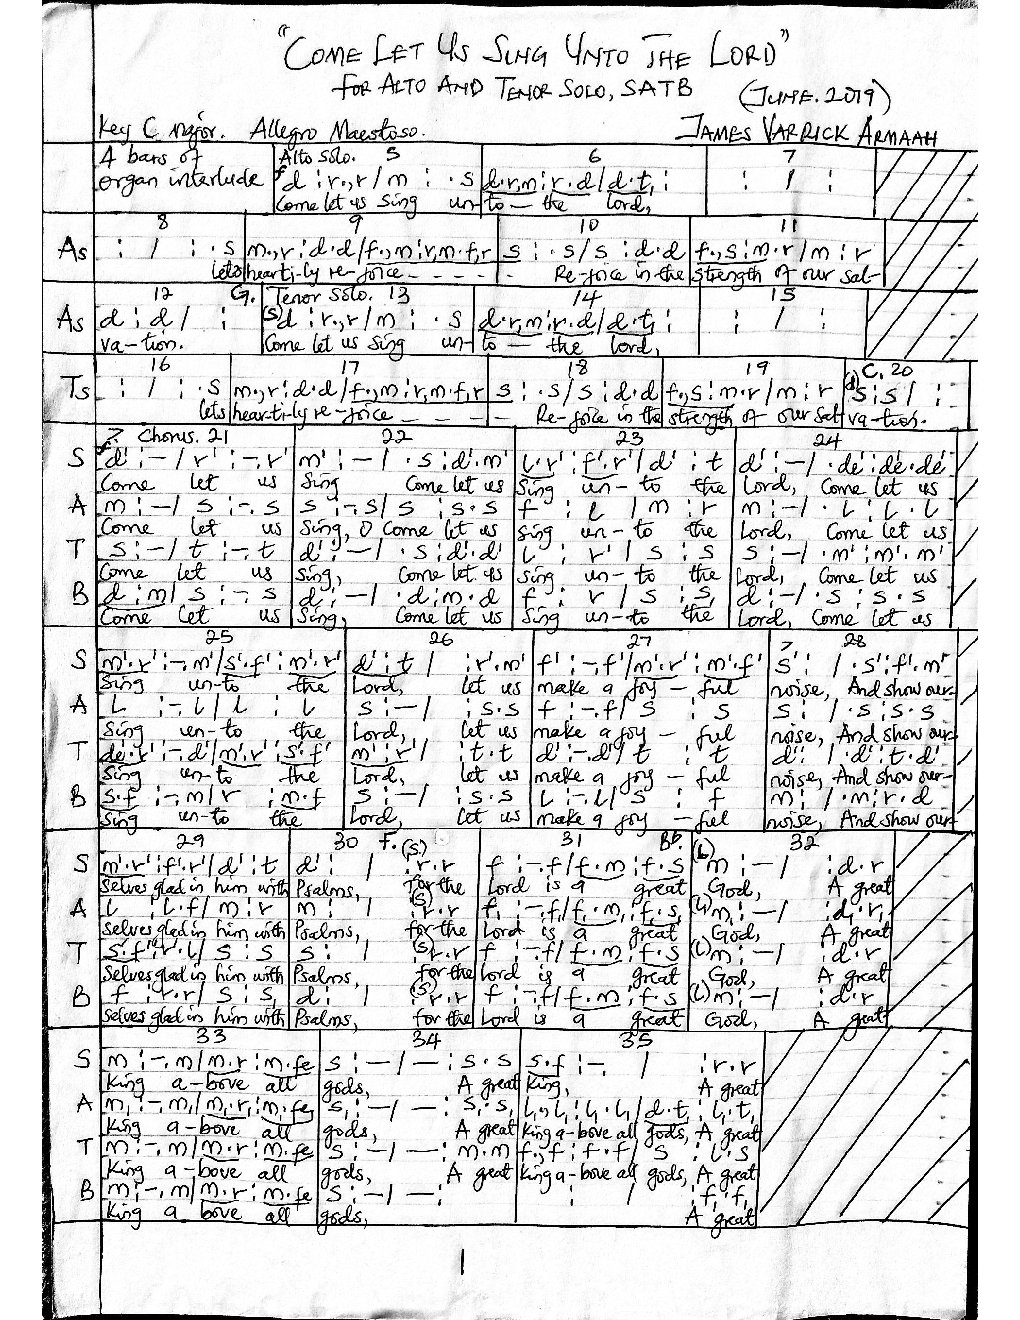 "COME LET US SING UNTO THE LORD"
FOR ALTO AND TENOR SOLO, SATB
(JUNE. 2019)
Key C major. Allegro Maestoso.
JAMES VARRICK ARMAAH
4 bars of Alto Solo. 5 6 7
organ interlude d : r.,r / m : . s d.r,m : r.d / d.t, : : / :
Come let us Sing un- to — the Lord,
8 9 10 11
As : / : . s m.,r : d.d / f.,m : r,m.f,r s : . s / s : d.d f.,s : m.r / m : r
lets hear-ti-ly re-joice - - - - - Re-joice in the strength of our sal-
12 G. Tenor Solo. 13 14 15
As d : d / : (s)d : r.,r / m : . s d.r,m : r.d / d.t, : : / :
va-tion. Come let us sing un- to — the Lord,
16 17 18 19 C. 20
Ts : / : . s m.,r : d.d / f.,m : r,m.f,r s : . s / s : d.d f.,s : m.r / m : r s : s / :
lets hear-ti-ly re-joice - - - - Re-joice in the strength of our sal va-tion.
Chorus. 21 22 23 24
S d' : – / r' : –. r' m' : – / . s : d'.m' l.r' : f'.r' / d' : t d' : – / . de' : de'. de'
Come let us Sing Come let us Sing un-to the Lord, Come let us
A m : – / s : –. s s : –. s / s : s.s f : l / m : r m : – / . l : l . l
Come let us Sing, O Come let us sing un-to the Lord, Come let us
T s : – / t : –. t d' : – / . s : d'.d' l : r' / s : s s : – / . m' : m'. m'
Come let us Sing, Come let us sing un-to the Lord, Come let us
B d : m / s : –. s d' : – / . d : m.d f : r / s : s, d : – / . s : s . s
Come let us Sing, Come let us Sing un-to the Lord, Come let us
25 26 27 28
S m'.r' : –. m' / s'.f' : m'.r' d' : t / : r'.m' f' : –. f' / m'.r' : m'.f' s' : / . s' : f'.m'
Sing un-to the Lord, let us make a joy – ful noise, And show our-
A l : –. l / l : l s : – / : s.s f : –. f / s : s s : / . s : s.s
Sing un-to the Lord, let us make a joy – ful noise, And show our-
T de'.r' : –. d' / m'.r' : s'.f' m' : r' / : t.t d' : –. d' / t : t d' : / . d' : t.d'
Sing un-to the Lord, let us make a joy – ful noise, And show our-
B s.f : –. m / r : m.f s : – / : s.s l : –. l / s : f m : / . m : r.d
Sing un-to the Lord, let us make a joy – ful noise, And show our-
29 30 F. 31 Bb. 32
S m'.r' : f'.r' / d' : t d' : / (s) : r.r f : –. f / f.m : f.s (l)m : – / : d.r
selves glad in him with Psalms, for the Lord is a great God, A great
A l : l.f / m : r m : / (s) : r.r f, : –. f, / f,.m, : f,.s, (l)m, : – / : d,.r,
selves glad in him with Psalms, for the Lord is a great God, A great
T s'.f' : r'.l / s : s s : / (s) : r.r f : –. f / f.m : f.s (l)m : – / : d.r
selves glad in him with Psalms, for the Lord is a great God, A great
B f : r.r / s : s, d : / (s) : r.r f : –. f / f.m : f.s (l)m : – / : d.r
selves glad in him with Psalms, for the Lord is a great God, A great
33 34 35
S m : –. m / m.r : m.fe s : – / – : s.s s.f : –. / : r.r
King a-bove all gods, A great King, A great
A m, : –. m, / m,.r, : m,.fe, s, : – / – : s,.s, l,.,l, : l,.l, / d.t, : l,.t,
King a-bove all gods, A great King a-bove all gods, A great
T m : –. m / m.r : m.fe s : – / – : m.m f.,f : f.f / s : l.s
King a-bove all gods, A great King a-bove all gods, A great
B m : –. m / m.r : m.fe s : – / – : : / : f,.f,
King a bove all gods, A great
1